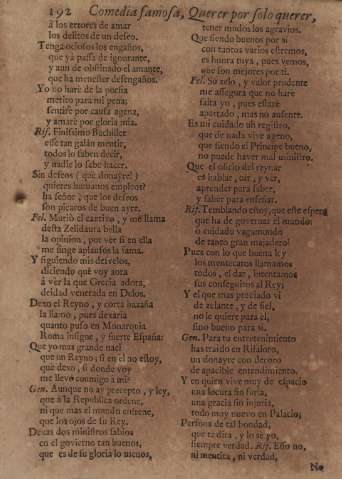 192 Comedia famosa, Querer por solo querer,
â los errores de amar
los delitos de un deseo.
Tenga ociosos los engaños,
que yà passa de ignorante,
y aun de obstinado el amante,
que ha menester desengaños.
Yo no harè de la
merito para mi pena;
sentirè por causa agena,
y amarè por gloria mia.
Ris. Finissimo Bachiller
esse tan galàn mentir,
todos lo saben decir,
y nadie lo sabe hacer.
Sin deseos (què donayre!)
quieres humanos empleos?
ha señor, que los deseos
son picaros de buen ayre.
Fel. Muriò el cautivo, y me llama
desta Zelidaura bella
la opinion, por vèr si en ella
me finge aplausos la fama.
Y siguiendo mis desvelos,
diciendo què voy aora
à vèr la que Grecia adora,
deidad venerada en Delos.
Dexo el Reyno, y corta hazaña
la llamo, pues dexaria
quanto puso en Monarquia
Roma insigne, y fuerte España:
Que yo mas grande nacì
que un Reyno; si en èl no estoy,
què dexo, si donde voy
me llevo conmigo à mi?
Gen. Aunque no ay precepto, y ley,
que à la Republica ordene,
ni que mas el mundo enfrene,
que los ojos de su Rey.
Dexas dos ministros sabios
en el govierno tan buenos,
que es de su gloria lo menos,
tener modos los agravios.
Que siendo buenos por sì
con tantos varios estremos,
es honra tuya, pues vemos,
que son mejores por ti.
Fel. Su zelo, y valor prudente
me assegura que no harè
falta yo, pues estarè
apartado, mas no ausente.
Es mi cuidado un registro,
que de nada vive ageno,
que siendo el Principe bueno,
no puede haver mal ministro.
Que el oficio del reynar
es hablar, oìr, y vèr,
aprender para saber,
y saber para enseñar.
Ris. Temblando estoy, que este espera
que ha de governar el mundo:
ò cuidado vagamundo
de tanto gran majadero!
Pues con lo que buena ley
los mentecatos llamamos
todos, el dar, intentamos
sus conseguislos al Rey:
Y el que mas preciado vì
de zelante, y de fiel,
no le quiere para èl,
sino bueno para sì.
Gen. Para tu entretenimiento
has traido en Risaloro,
un donayre con decoro
de apacible entendimiento.
Y en quien vive muy de espacio
una locura sin furia,
una gracia sin injuria,
todo muy nuevo en Palacio;
Persona de tal bondad,
que te dirà, y lo sè yo,
siempre verdad. Ris. Esso no,
ni mentira, ni verdad,
No